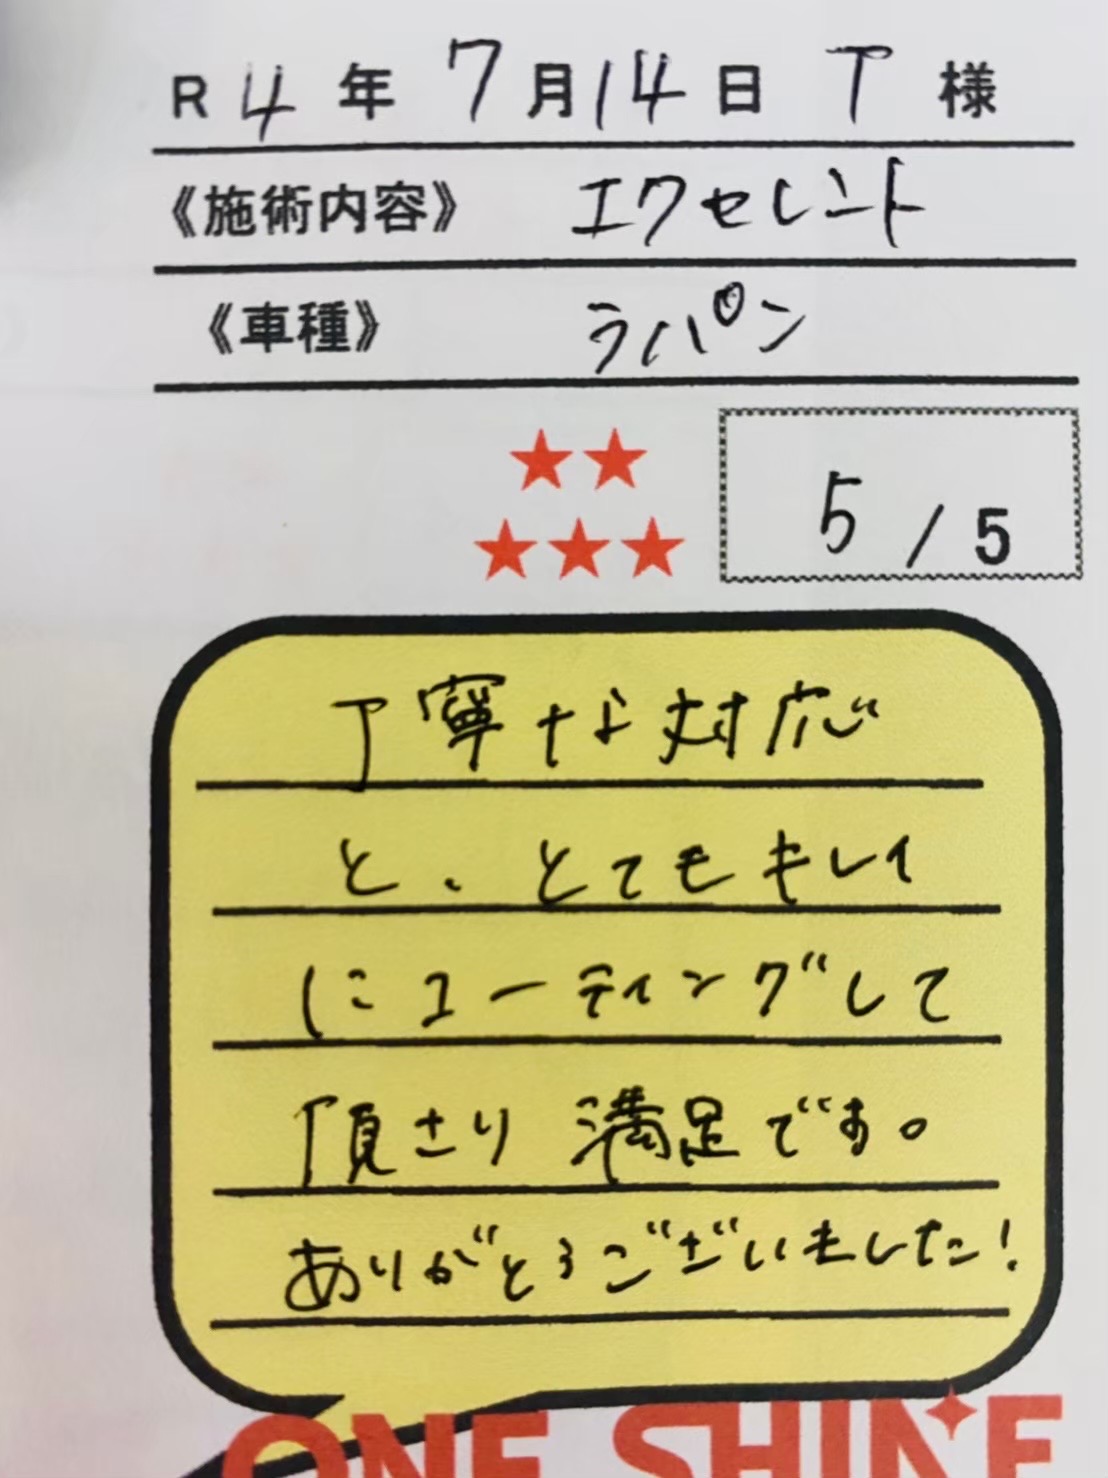 R4年7月14日 T様
《施術内容》 エクセレント
《車種》 ラパン
5/5
丁寧な対応
と、とてもキレイ
にコーティングして
頂さり 満足です。
ありがとうございました!
ONE SHINE